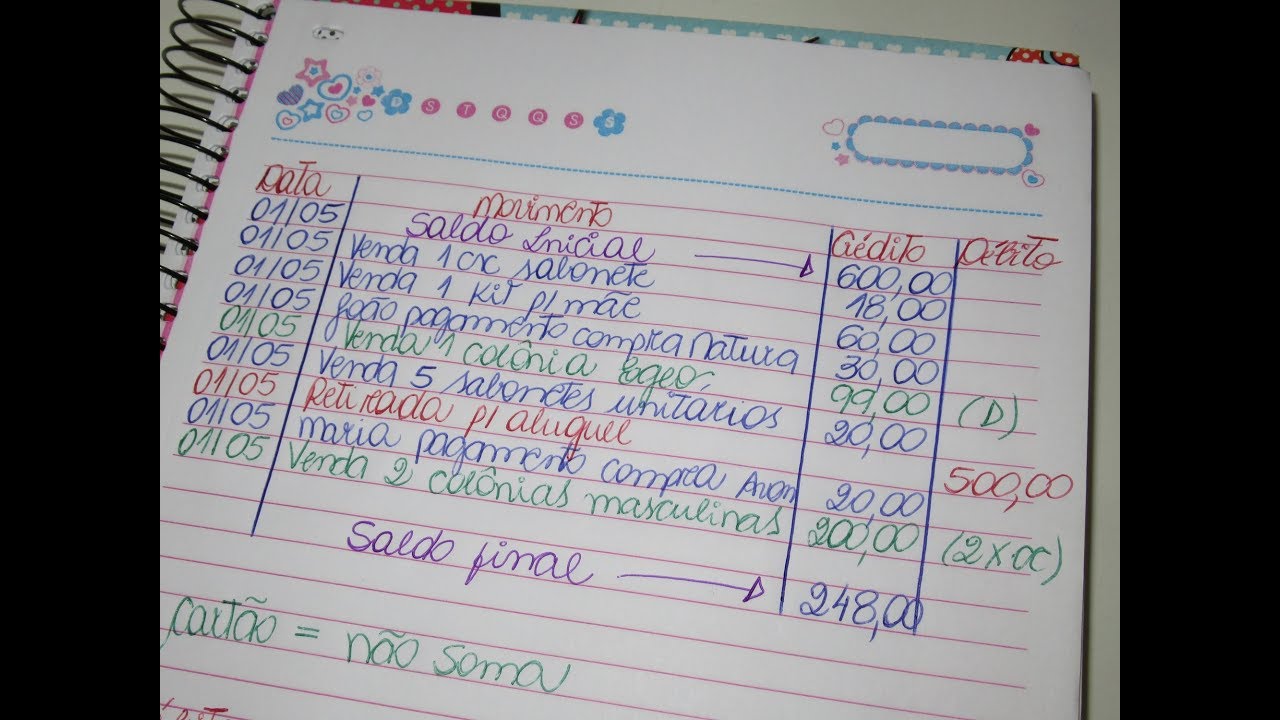 D S T Q Q S S
Data Movimento Crédito Débito
01/05 Saldo Inicial 600,00
01/05 Venda 1 cx sabonete 18,00
01/05 Venda 1 Kit p/ mãe 60,00
01/05 João pagamento compra Natura 30,00
01/05 Venda 1 colônia Egeo 99,00 (D)
01/05 Venda 5 sabonetes unitarios 20,00
01/05 Retirada p/ aluguel 500,00
01/05 maria pagamento compra Avon 20,00
01/05 Venda 2 colônias masculinas 200,00 (2x cc)
Saldo final 248,00
Cartão = não soma